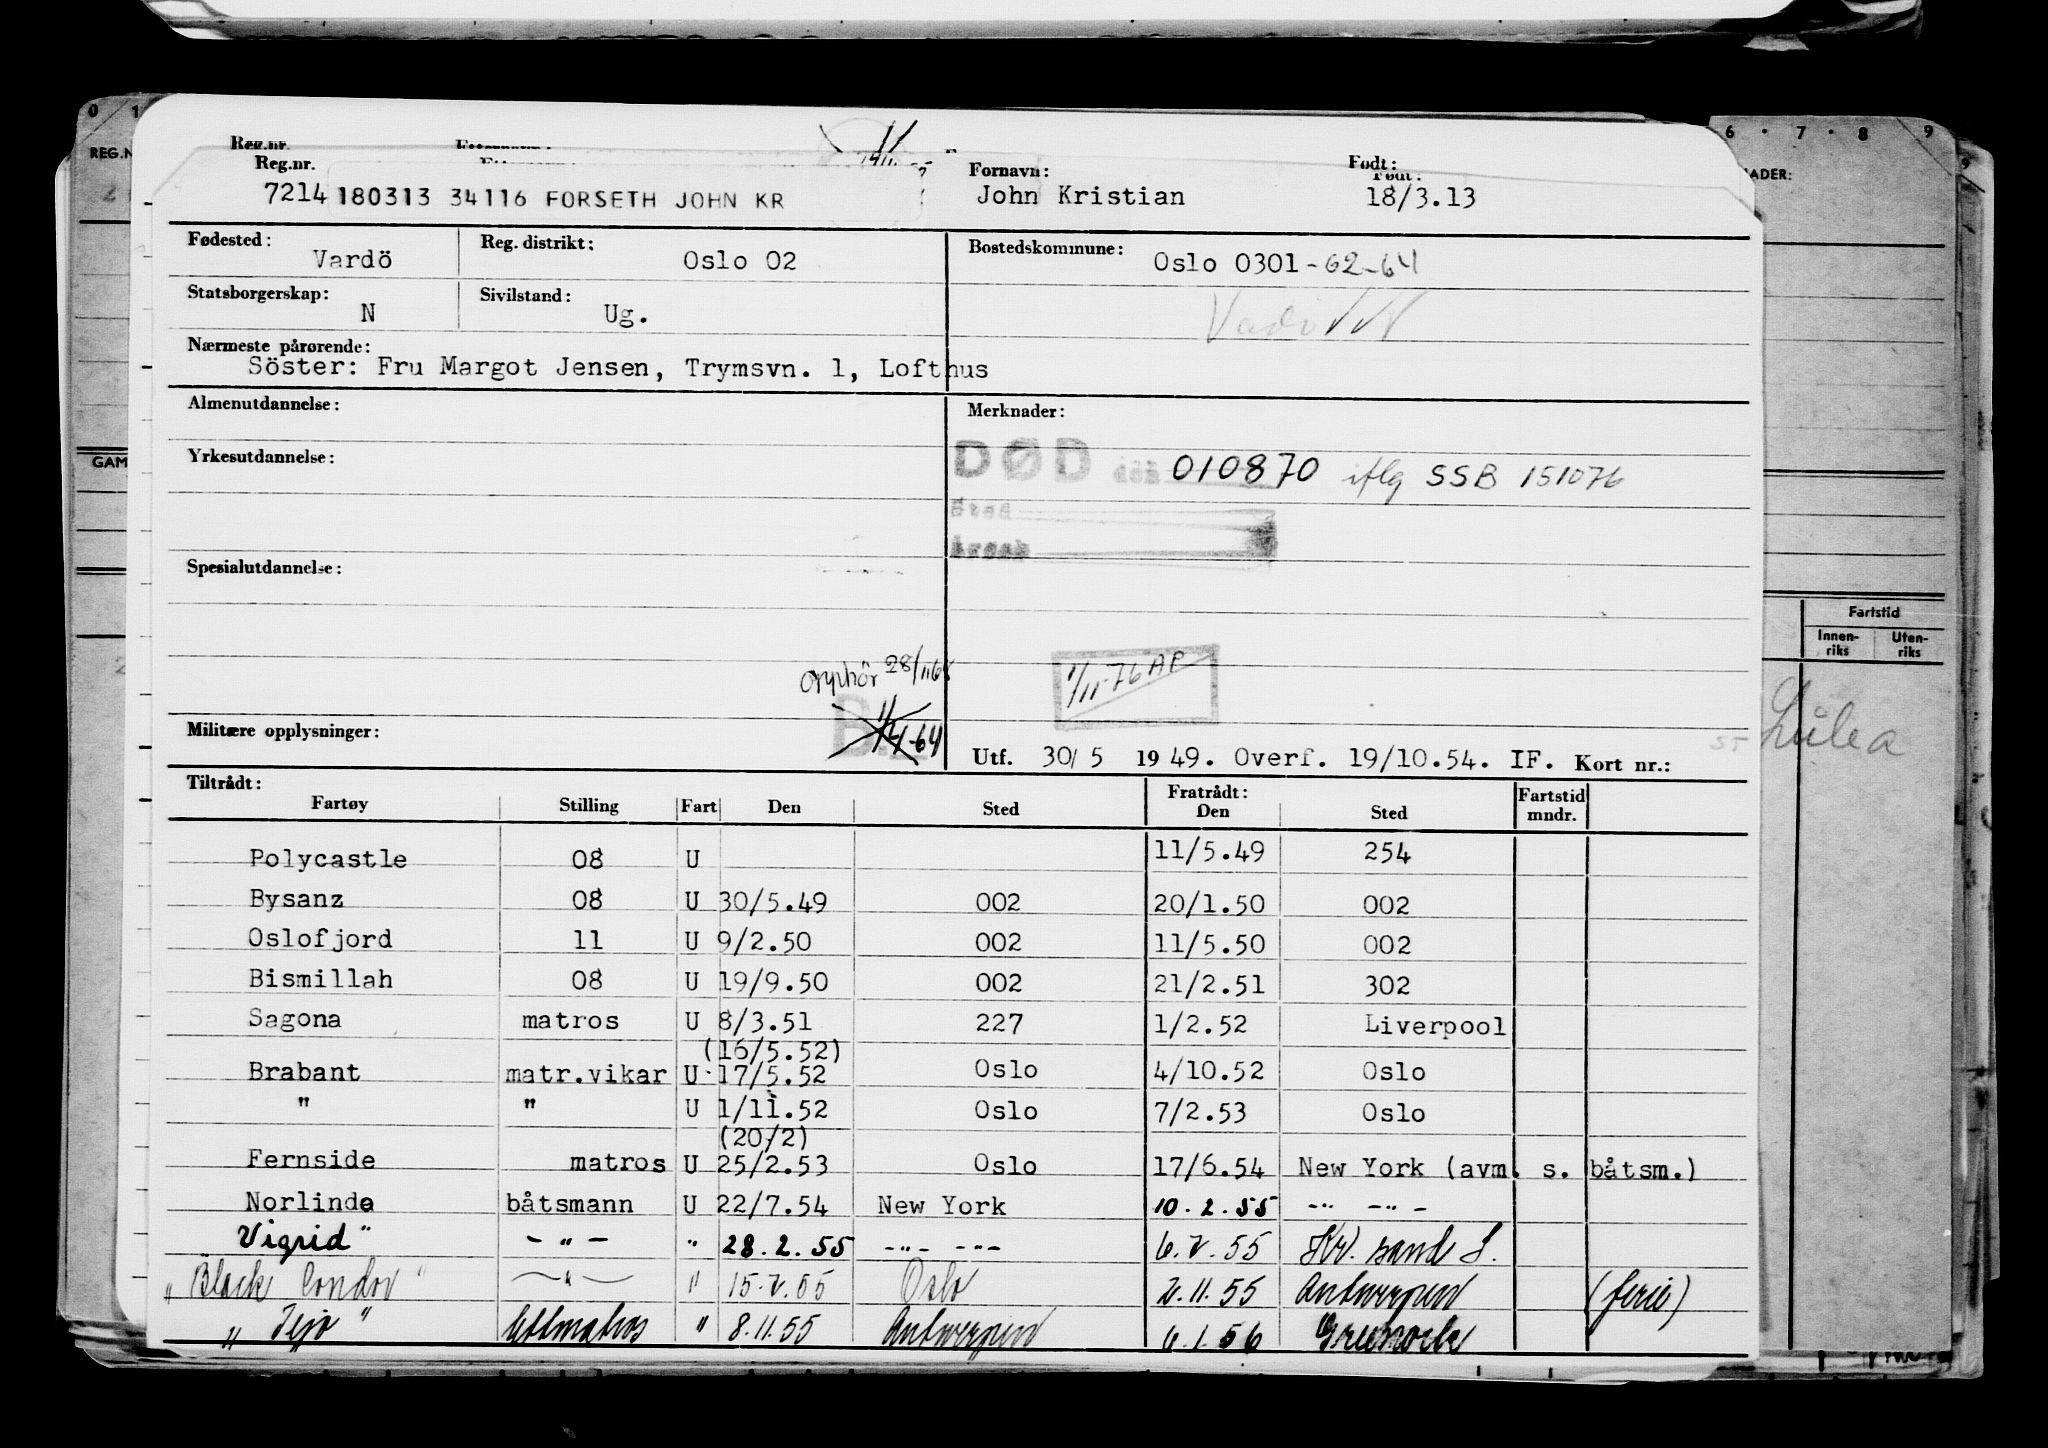 0 1
6 · 7 · 8 9
REG.N
ADER:
Reg.nr.
Reg.nr. Fornavn: Født:
7214 180313 34116 FORSETH JOHN KR John Kristian 18/3.13
Fødested: Vardö Reg. distrikt: Oslo 02 Bostedskommune: Oslo 0301-62-64
Statsborgerskap: N Sivilstand: Ug.
Nærmeste pårørende:
Söster: Fru Margot Jensen, Trymsvn. 1, Lofthus
Almenutdannelse: Merknader:
GAM
Yrkesutdannelse: DØD den 010870 iflg SSB 151076
Sted
Årsak
Spesialutdannelse:
Fartstid
Innen-riks Uten-riks
opphör 28/11 64
1/11-76 AP
Luleå
Militære opplysninger: Utf. 30/5 1949. Overf. 19/10.54. IF. Kort nr.:
Tiltrådt: Fratrådt:
Fartøy Stilling Fart Den Sted Den Sted Fartstid mndr.
Polycastle 08 U 11/5.49 254
Bysanz 08 U 30/5.49 002 20/1.50 002
Oslofjord 11 U 9/2.50 002 11/5.50 002
Bismillah 08 U 19/9.50 002 21/2.51 302
Sagona matros U 8/3.51 227 1/2.52 Liverpool
(16/5.52)
Brabant matr.vikar U 17/5.52 Oslo 4/10.52 Oslo
" " U 1/11.52 Oslo 7/2.53 Oslo
(20/2)
Fernside matros U 25/2.53 Oslo 17/6.54 New York (avm. s. båtsm.)
Norlinde båtsmann U 22/7.54 New York 10.2.55 -"- -"-
Vigrid" -"- " 28.2.55 -"- -"- 6.V.55 Kr. sand S.
"Black Condor" -"- " 15.V.55 Oslo 2.11.55 Antwerpen (ferie)
"Tejo" lettmatros " 8.11.55 Antwerpen 6.1.56 Greenock